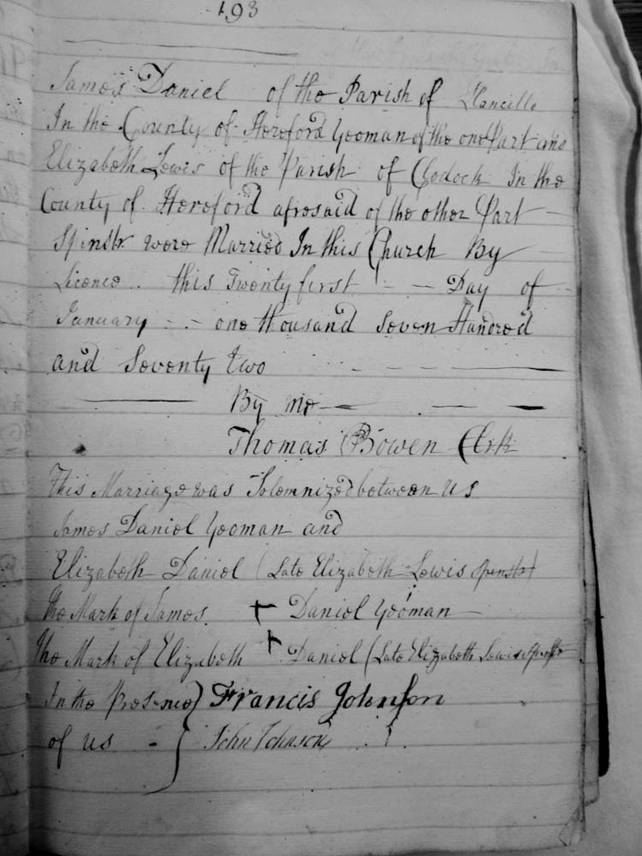 193
James Daniel of the Parish of Llancillo
In the County of Hereford Yeoman of the one Part and
Elizabeth Lewis of the Parish of Clodock In the
County of Hereford aforesaid of the other Part
Spinstr were Married In this Church By
Licence this Twenty first Day of
January one thousand Seven Hundred
and Seventy two
By me
Thomas Bowen Clrk
This Marriage was Solemnized between us
James Daniel Yeoman and
Elizabeth Daniel (Late Elizabeth Lewis Spinstr)
The Mark of James + Daniel Yeoman
The Mark of Elizabeth + Daniel (Late Elizabeth Lewis
In the Presence } Francis Johnson
of us } John Johnson